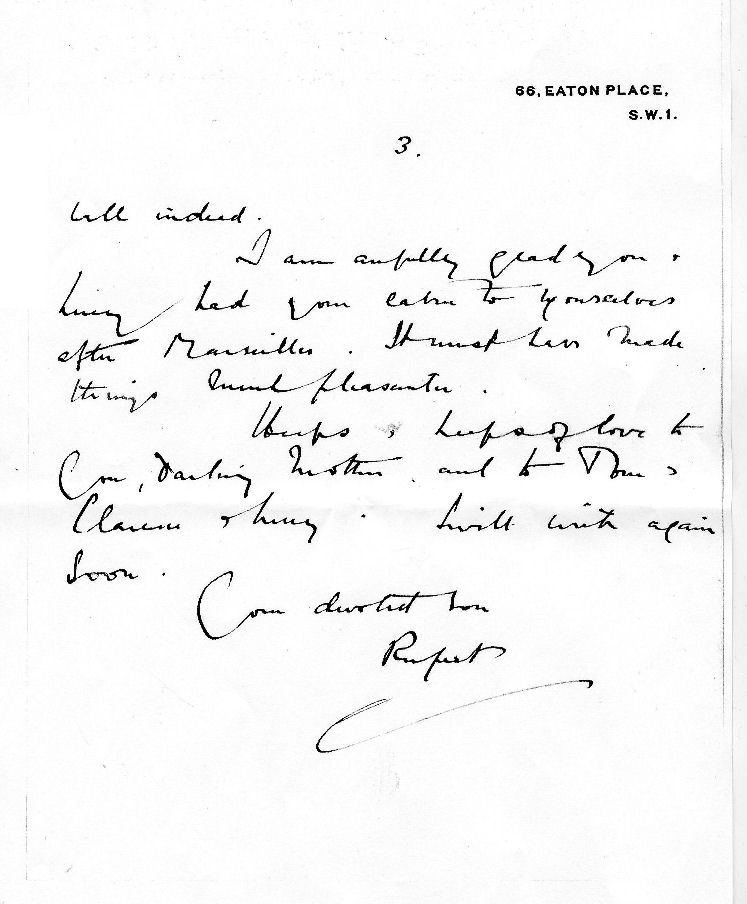 66, EATON PLACE,
S.W.1.
3.
well indeed.
I am awfully glad you &
had your cabin to yourselves
after Marseilles. It must have made
things much pleasanter.
Heaps & heaps of love to
you, darling Mother, and to &
Clarence & . I will write again
soon.
Your devoted son
Rupert